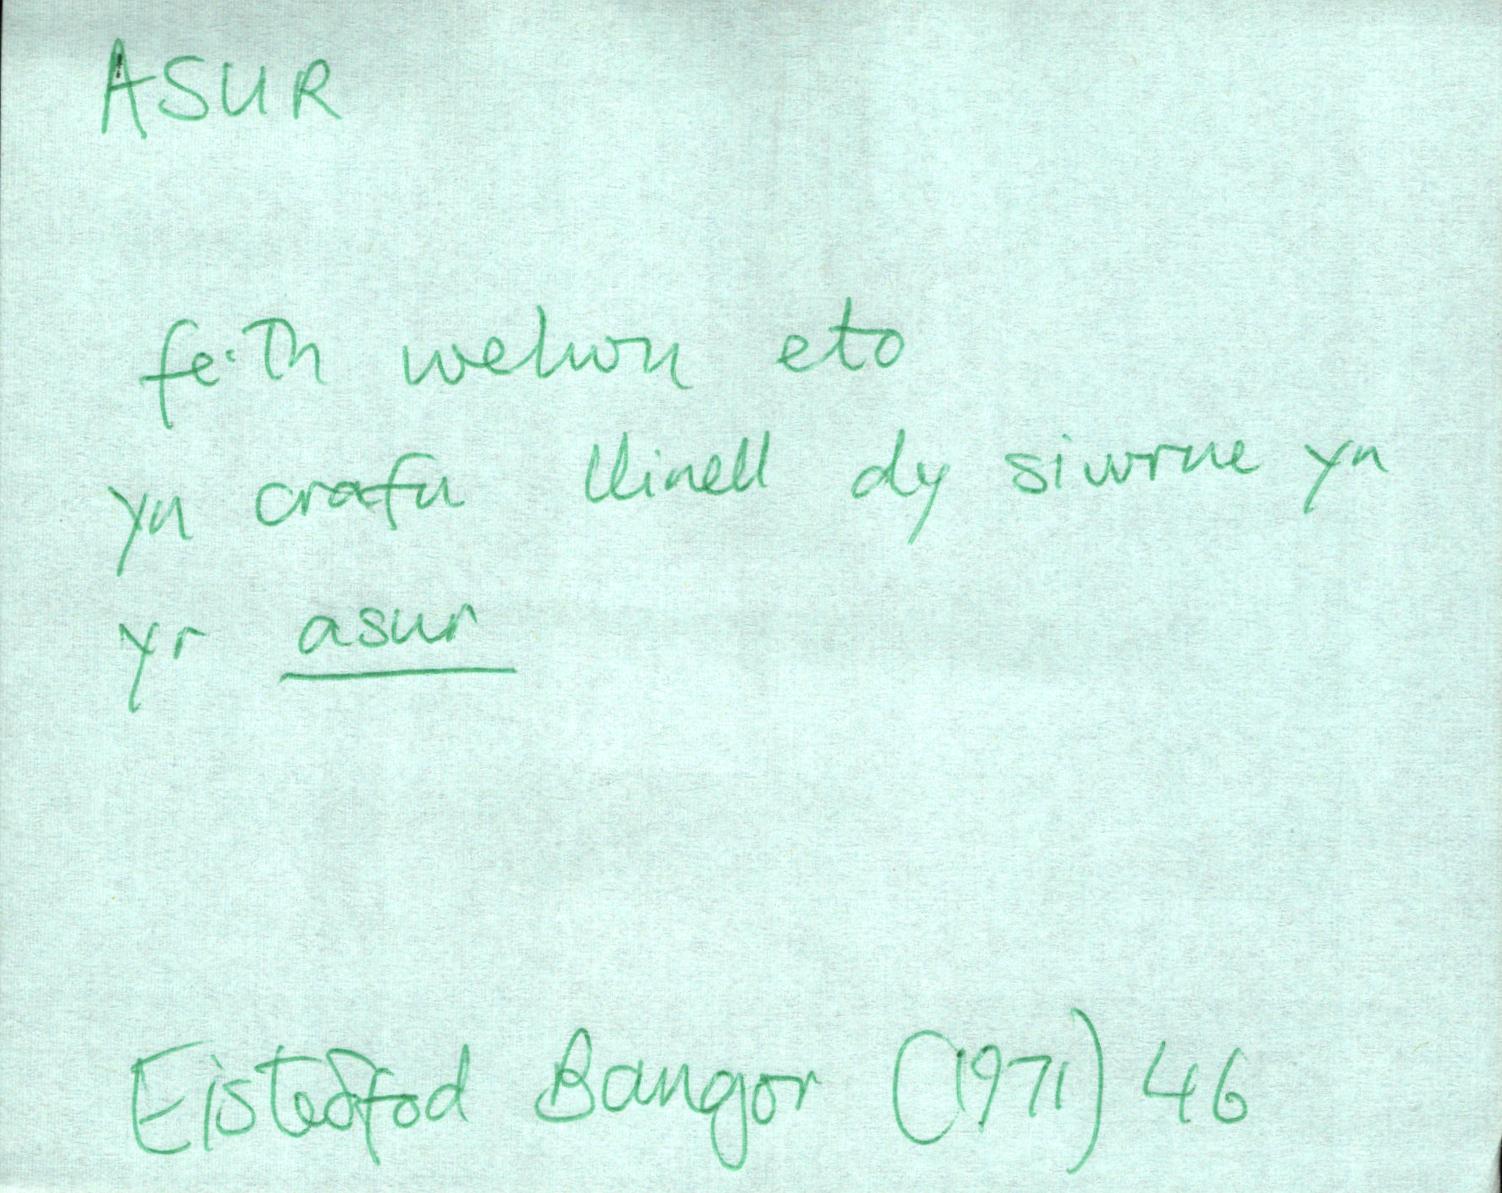 ASUR
fe'th welwn eto
yn crafu llinell dy siwrne yn
yr asur
Eisteðfod Bangor (1971) 46